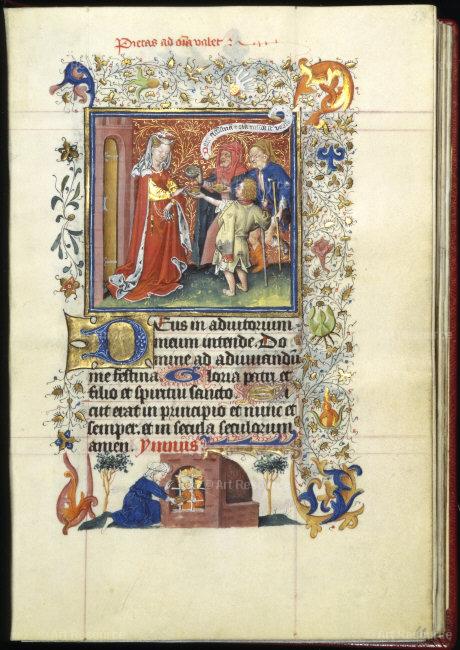 Pietas ad oīa valet
Deus in adiutorium
meum intende. Do
mine ad adiuuandū
me festina. Gloria patri et
filio et spiritui sancto. Si
cut erat in principio et nunc et
semper. et in secula seculorum
amen. Ymnus
© Art